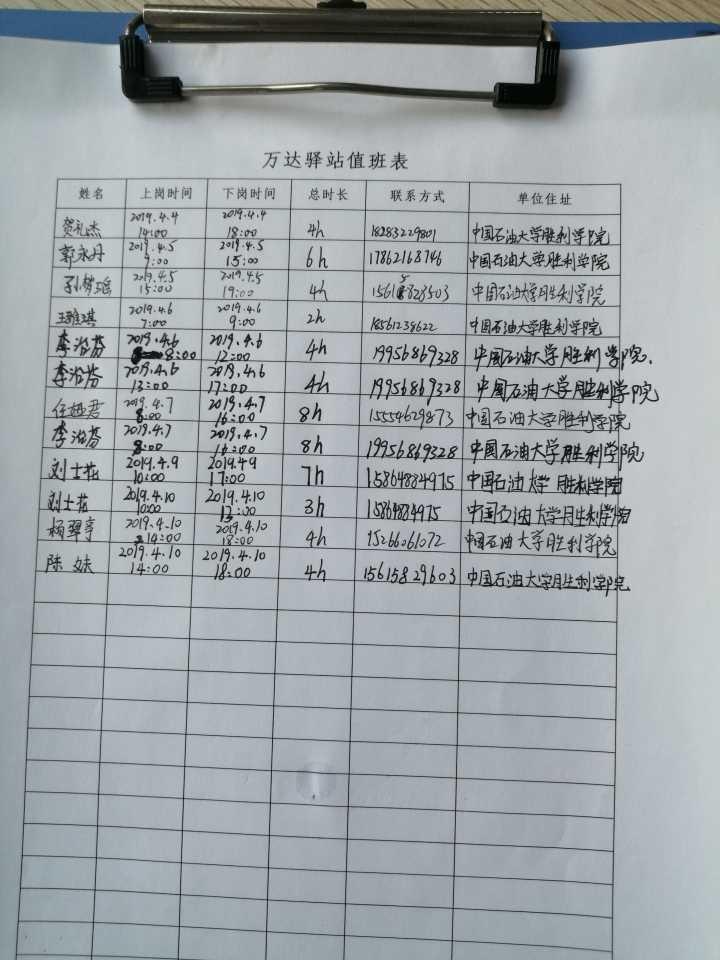 万达驿站值班表
姓名 上岗时间 下岗时间 总时长 联系方式 单位住址
贺礼杰 2019.4.4 14:00 2019.4.4 18:00 4h 18283229801 中国石油大学胜利学院
郭永丹 2019.4.5 9:00 2019.4.5 15:00 6h 17862168746 中国石油大学胜利学院
孙梦瑶 2019.4.5 15:00 2019.4.5 19:00 4h 中国石油大学胜利学院
王雅琪 2019.4.6 7:00 2019.4.6 9:00 2h 18561238622 中国石油大学胜利学院
李治芬 2019.4.6 8:00 2019.4.6 12:00 4h 19956869328 中国石油大学胜利学院.
李治芬 2019.4.6 13:00 2019.4.6 17:00 4h 19956869328 中国石油大学胜利学院
2019.4.7 8:00 2019.4.7 16:00 8h 15554629873 中国石油大学胜利学院
李治芬 2019.4.7 8:00 2019.4.7 16:00 8h 19956869328 中国石油大学胜利学院
刘士花 2019.4.9 10:00 2019.4.9 17:00 7h 15864884975 中国石油大学胜利学院
刘士花 2019.4.10 10:00 2019.4.10 13:00 3h 15864884975 中国石油大学胜利学院
杨翠亭 2019.4.10 14:00 2019.4.10 18:00 4h 15266061072 中国石油大学胜利学院
陈妹 2019.4.10 14:00 2019.4.10 18:00 4h 15615829603 中国石油大学胜利学院